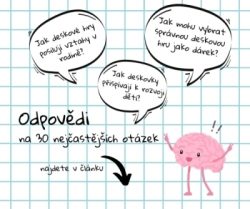 Jak deskové hry
posilují vztahy v
rodině?
Jak mohu vybrat
správnou deskovou
hru jako dárek?
Jak deskovky
přispívají k rozvoji
dětí?
Odpovědi
na 30 nejčastějších otázek
najdete v článku
!!